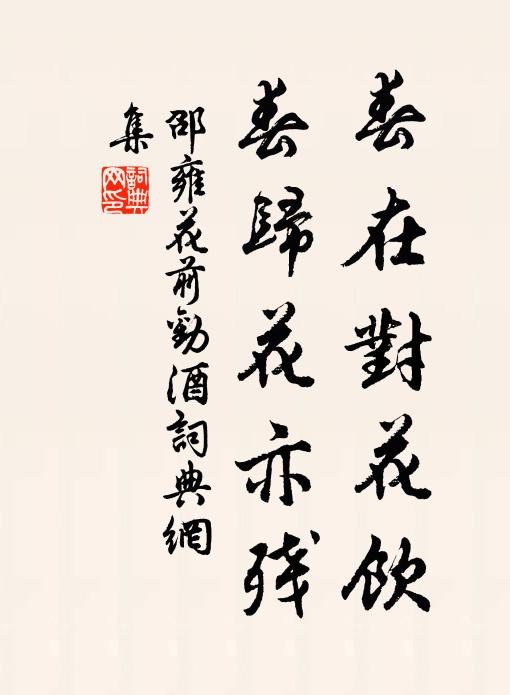 春在對花飲
春歸花亦残
邵雍花前勸酒詞典網
集
詞典
网印